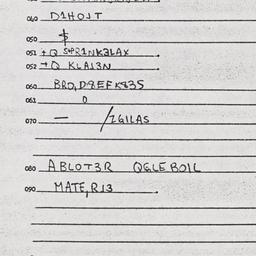 040 D1HOJT
050 $
051 + Q S4PR1NK3LAX
052 + Q KLAI3N
060 BRO,D8EFK835
061 0
070 — /ZGILAS
080 ABLOT3R QGLE BOIL
090 MATE,R13